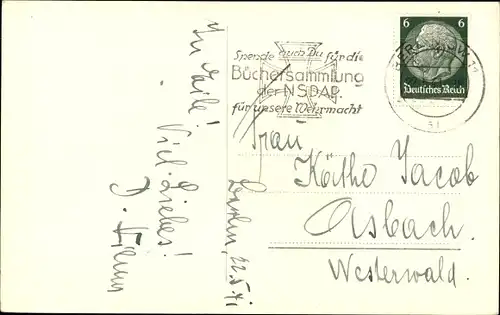 In Eile!
Viel Liebes!
Berlin, 22.5.41
Spende auch Du für die
Büchersammlung
der NSDAP.
für unsere Wehrmacht
6 6
Deutsches Reich
Frau
Käthe Jacob
Asbach.
Westerwald.